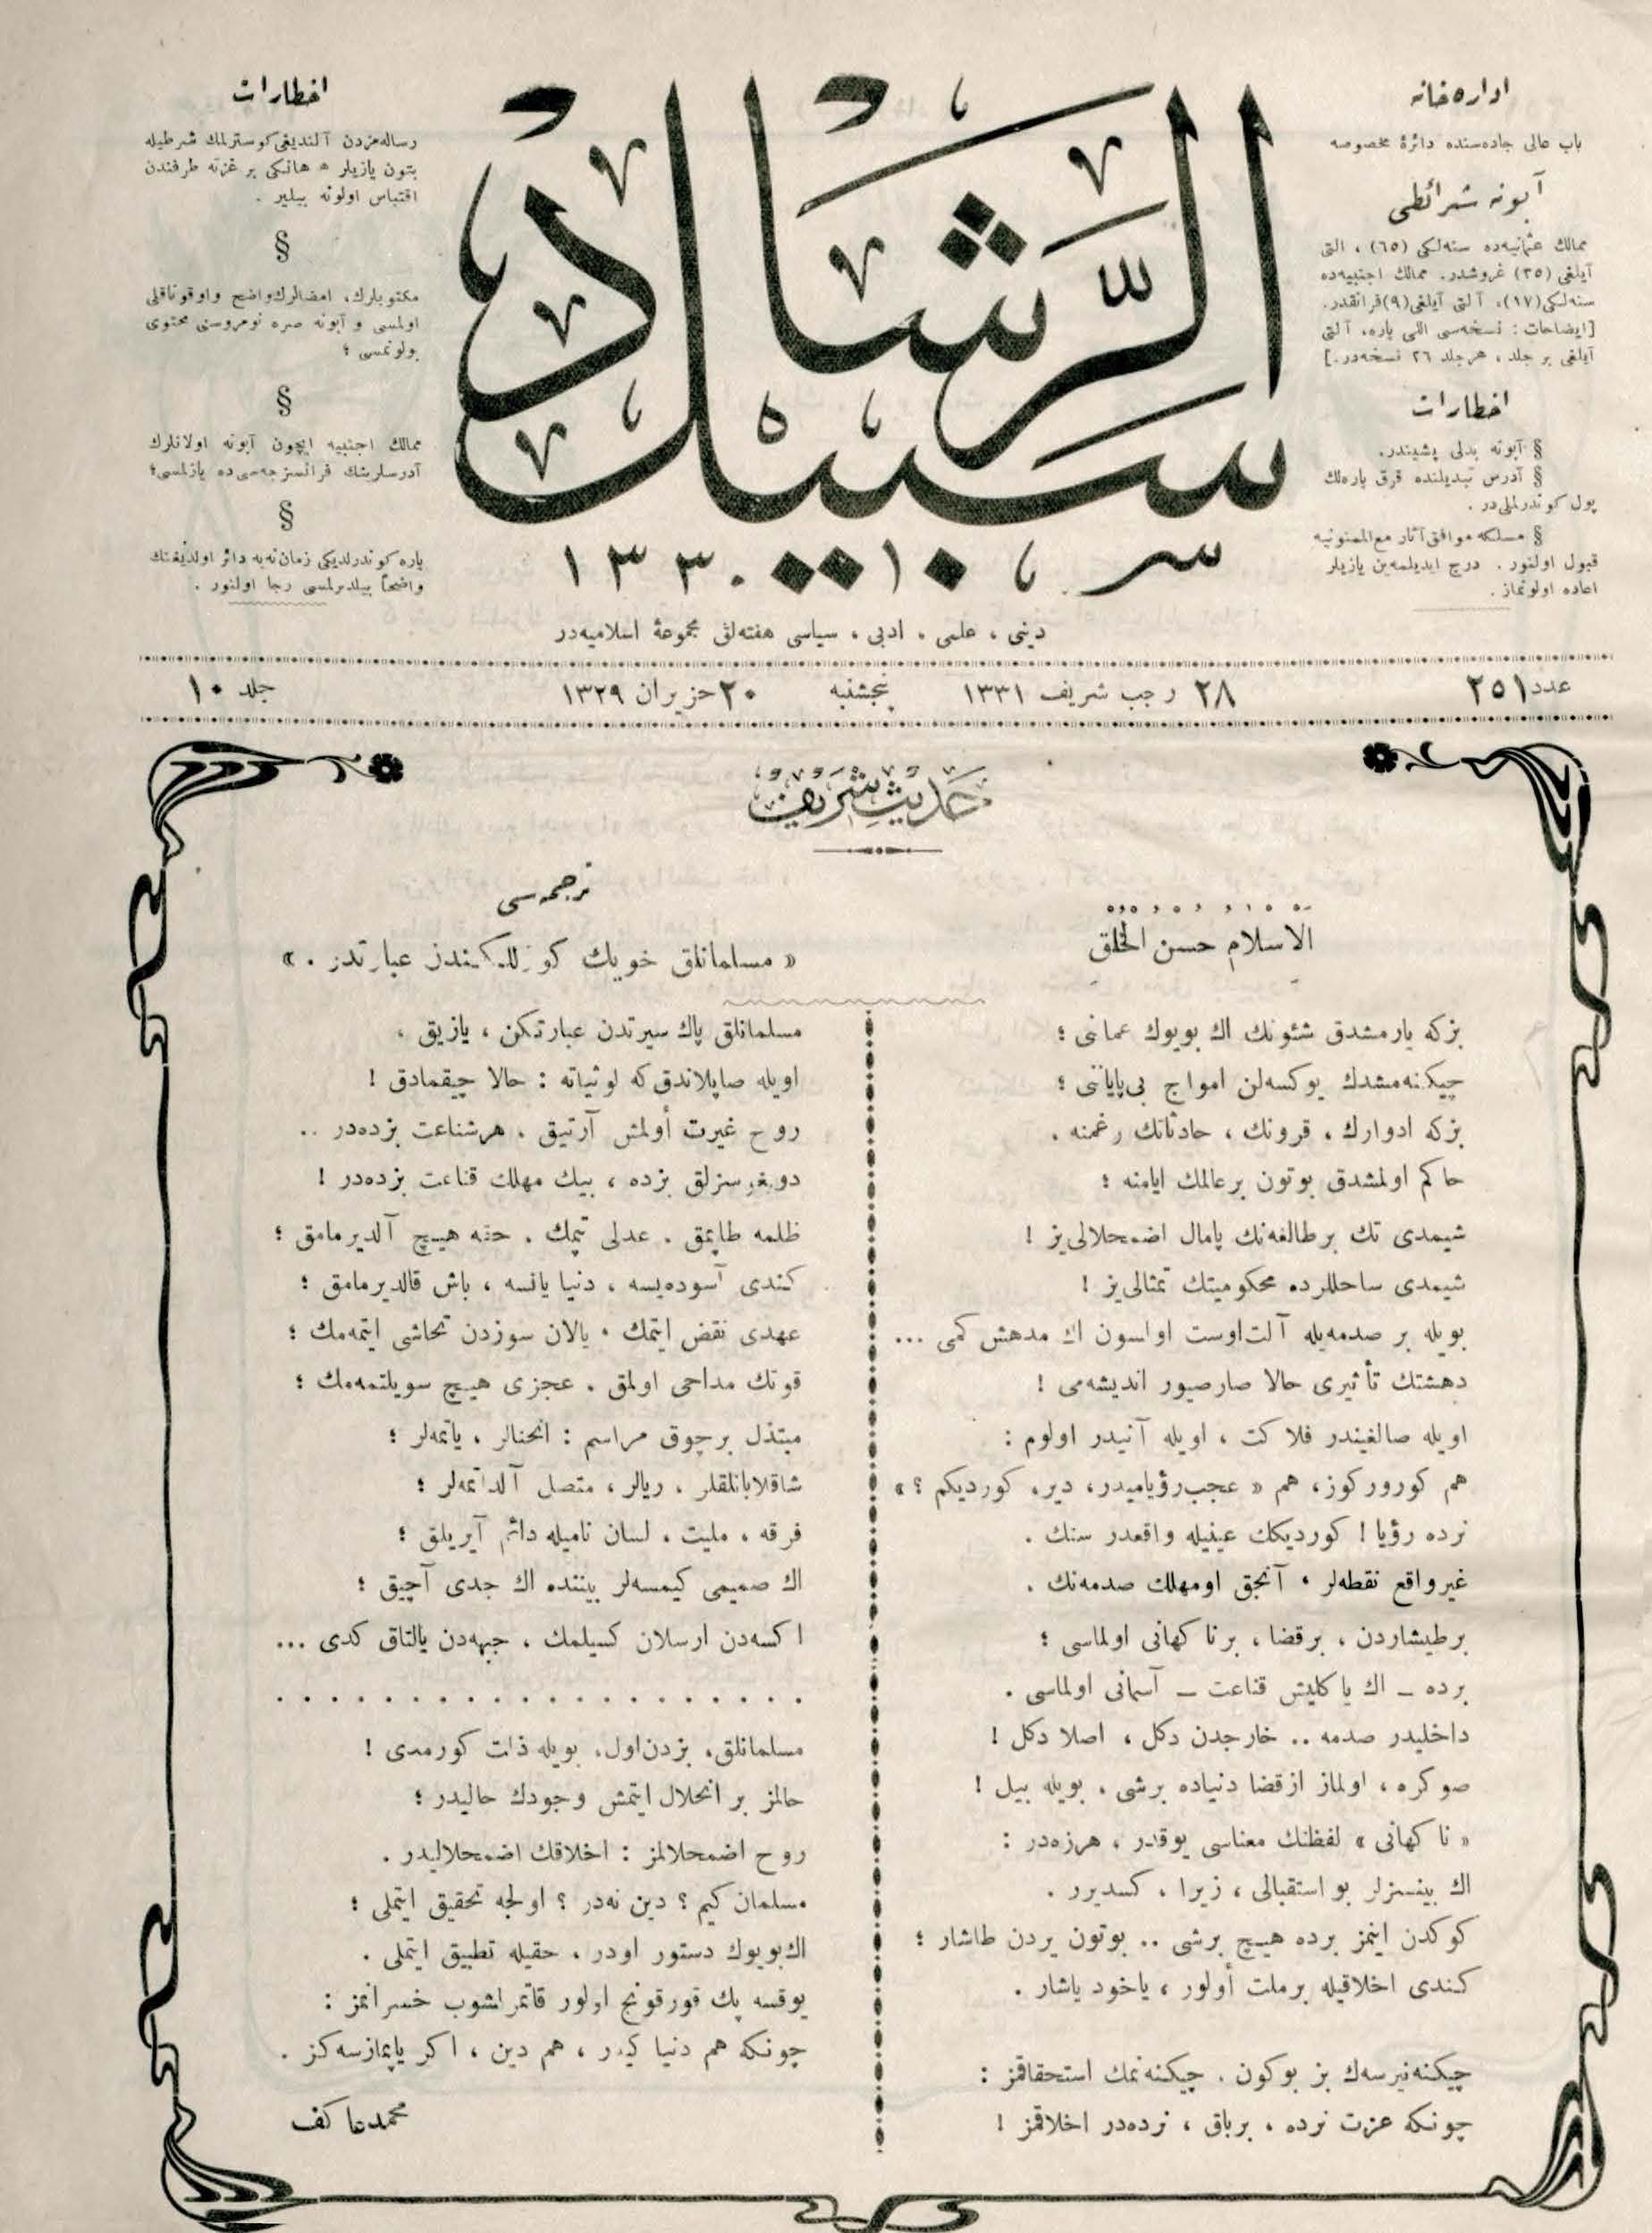 اداره‌خانه
باب عالی جاده‌سنده دائرهٔ مخصوصه
آبونه شرائطی
ممالك عثمانیه‌ده سنه‌لكی (٦٥) ، التی
آیلغی (٣٥) غروشدر. ممالك اجنبیه‌ده
سنه‌لكی (١٧) ، آلتی آیلغی (٩) فرانقدر.
[ایضاحات : نسخه‌سی اللی پاره، آلتی
آیلغی بر جلد ، هر جلد ٢٦ نسخه‌در.]
اخطارات
§ آبونه بدلی پشیندر.
§ آدرس تبدیلنده قرق پاره‌لك
پول كوندرلملی‌در .
§ مسلكه موافق آثار مع‌الممنونیه
قبول اولنور . درج ایدیلمه‌ین یازیلر
اعاده اولونماز .
سبیل الرشاد
١٣٣٠
اخطارات
رساله‌مزدن آلندیغی كوسترلمك شرطیله
بتون یازیلر هر هانكی بر غزته طرفندن
اقتباس اولونه بیلیر .
§
مكتوبلرك، امضالرك واضح و اوقوناقلی
اولمسی و آبونه صره نومروسنی محتوی
بولونمسی ؛
§
ممالك اجنبیه ایچون آبونه اولانلرك
آدرسلرینك فرانسزجه‌سی‌ده یازلمسی؛
§
پاره كوندرلدیكی زمان نه‌یه دائر اولدیغنك
واضحاً بیلدیرلمسی رجا اولنور .
دینی ، علمی ، ادبی ، سیاسی هفته‌لق مجموعهٔ اسلامیه‌در
عدد ٢٥١
٢٨ رجب شریف ١٣٣١
پنجشنبه
٢٠ حزیران ١٣٢٩
جلد ١٠
حدیث شریف
الاسلام حسن الخلق
ترجمه‌سی
« مسلمانلق خویك كوزللكیندن عبارتدر . »
بزكه یارمشدق شئونك اك بویوك عمانی ؛
چیكنه‌مشدك یوكسه‌لن امواج بی‌پایانی ؛
بزكه ادوارك ، قرونك ، حادثاتك رغمنه ،
حاكم اولمشدق بوتون بر عالمك ایامنه ؛
شیمدی تك بر طالغه‌نك پامال اضمحلالی‌یز !
شیمدی ساحللرده محكومیتك تمثالی‌یز !
بویله بر صدمه‌یله آلت اوست اولسون اك مدهش كمی ...
دهشتك تأثیری حالا صارصیور اندیشه‌می !
اویله صالغیندر فلاكت ، اویله آنیدر اولوم :
هم كورور كوز، هم « عجب رؤیامیدر، دیر، كوردیكم ؟ »
نرده رؤیا ! كوردیكك عینیله واقعدر سنك .
غیر واقع نقطه‌لر ، آنجق او مهلك صدمه‌نك ،
بر طیشاردن ، بر قضا ، بر ناكهانی اولماسی ؛
برده ــ اك یاكلیش قناعت ــ آسمانی اولماسی .
داخلیدر صدمه .. خارجدن دكل ، اصلا دكل !
صوكره ، اولماز از قضا دنیاده برشی ، بویله بیل !
« ناكهانی » لفظنك معناسی یوقدر ، هرزه‌در :
اك بینسزلر بو استقبالی ، زیرا ، كسدیرر .
كوكدن اینمز یرده هیچ برشی .. بوتون یردن طاشار ؛
كندی اخلاقیله بر ملت أولور ، یاخود یاشار .
چیكنه‌نیرسه‌ك بز بوكون ، چیكنه‌نمك استحقاقمز :
چونكه عزت نرده ، بر باق ، نرده‌در اخلاقمز !
مسلمانلق پاك سیرتدن عبارتكن ، یازیق ،
اویله صاپلاندق كه لوثیاته : حالا چیقمادق !
روح غیرت أولمش آرتیق ، هر شناعت بزده‌در ..
دویغوسزلق بزده ، بیك مهلك قناعت بزده‌در !
ظلمه طاپمق ، عدلی تپمك ، حقه هیچ آلدیرمامق ؛
كندی آسوده‌یسه ، دنیا یانسه ، باش قالدیرمامق ؛
عهدی نقض ایتمك ، یالان سوزدن تحاشی ایتمه‌مك ؛
قوتك مداحی اولمق ، عجزی هیچ سویلتمه‌مك ؛
مبتذل بر چوق مراسم : انحنالر ، یاتمه‌لر ؛
شاقلابانلقلر ، ریالر ، متصل آلداتمه‌لر ؛
فرقه ، ملیت ، لسان نامیله دائم آیریلق ؛
اك صمیمی كیمسه‌لر بیننده اك جدی آچیق ؛
اكسه‌دن ارسلان كسیلمك ، جبهه‌دن یالتاق كدی ...
. . . . . . . . . . . . . . . . . . . .
مسلمانلق، بزدن اول، بویله ذلت كورمدی !
حالمز بر انحلال ایتمش وجودك حالیدر ؛
روح اضمحلالمز : اخلاقك اضمحلالیدر .
مسلمان كیم ؟ دین نه‌در ؟ اولجه تحقیق ایتملی ؛
اك بویوك دستور اودر ، حقیله تطبیق ایتملی .
یوقسه پك قورقونج اولور قاتمرلشوب خسرانمز :
چونكه هم دنیا كیدر ، هم دین ، اكر یاپمازسه‌كز .
محمد عاكف